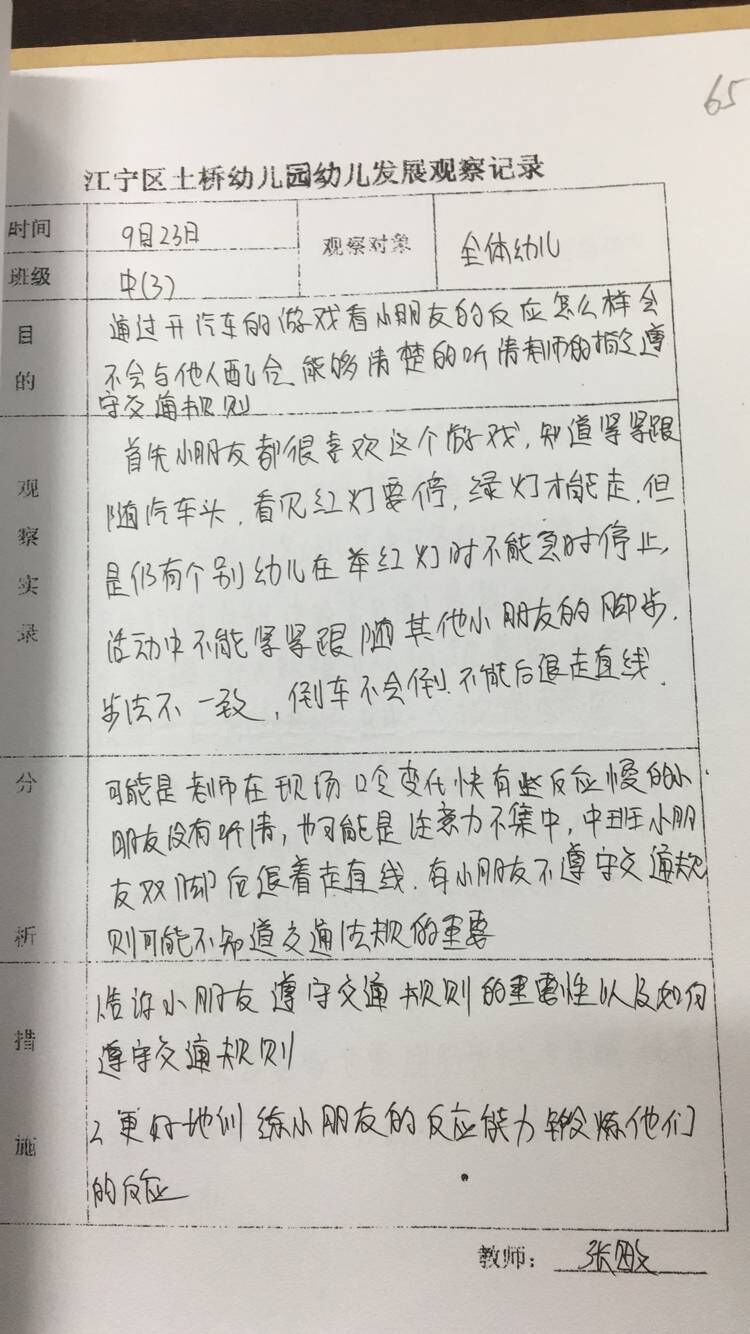 65
江宁区土桥幼儿园幼儿发展观察记录
时间 9月23日 观察对象 全体幼儿
班级 中(3)
目的
通过开汽车的游戏看小朋友的反应怎么样会
不会与他人配合 能够清楚的听清老师的指令遵
守交通规则
观察实录
首先小朋友都很喜欢这个游戏,知道紧紧跟
随汽车头,看见红灯要停,绿灯才能走,但
是仍有个别幼儿在举红灯时不能急时停止,
活动中不能紧紧跟随其他小朋友的脚步.
步法不一致,倒车不会倒.不能后退走直线.
分析
可能是老师在现场口令变化快有些反应慢的小
朋友没有听清,也可能是注意力不集中,中班小朋
友双脚后退着走直线.有小朋友不遵守交通规
则可能不知道交通法规的重要
措施
1.告诉小朋友遵守交通规则的重要性以及如何
遵守交通规则
2 更好地训练小朋友的反应能力 锻炼他们
的反应
教师: 张敏